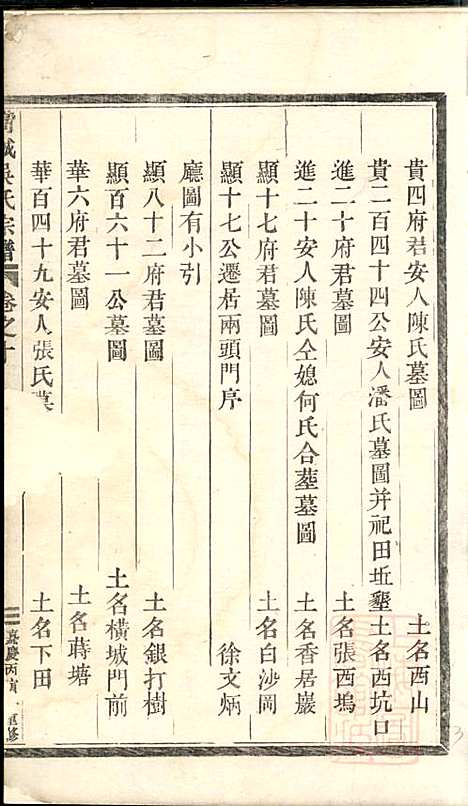 貴四府君安人陳氏墓圖 土名西山
貴二百四十四公安人潘氏墓圖并祀田坵墾 土名西坑口
進二十府君墓圖 土名張西塢
進二十安人陳氏仝媳何氏合塟墓圖 土名香居巖
顯十七府君墓圖 土名白沙岡
顯十七公遷居兩頭門序 徐文炳
廳圖有小引
顯八十二府君墓圖 土名銀打樹
顯百六十一公墓圖 土名橫城門前
華六府君墓圖 土名蒔塘
華百四十九安人張氏墓 土名下田
城吳氏宗譜 卷之 嘉慶丙寅 重修
3